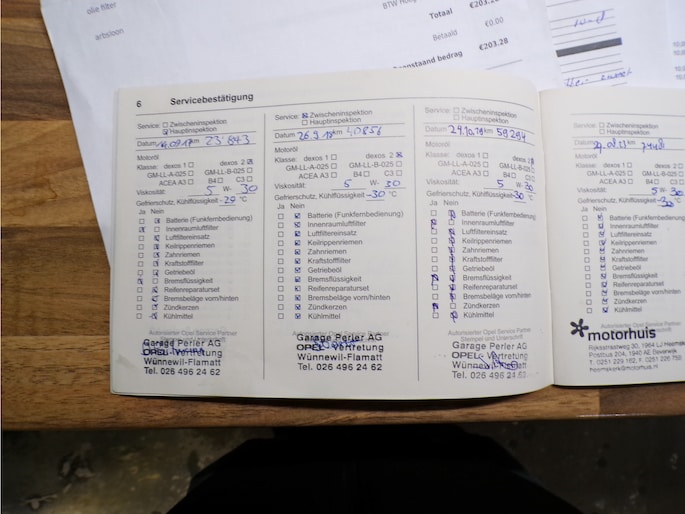 olie filter
arbsleen
BTW Hoog
Totaal €203.28
Betaald €0.00
Openstaand bedrag €203.28
6 Servicebestätigung
Service: ☐ Zwischeninspektion
☒ Hauptinspektion
Datum km 23'843
Motoröl
Klasse: dexos 1 ☐ dexos 2 ☒
GM-LL-A-025 ☐ GM-LL-B-025 ☐
ACEA A3 ☐ B4 ☐ C3 ☐
Viskosität: 5 W- 30
Gefrierschutz, Kühlflüssigkeit -29 °C
Ja Nein
Batterie (Funkfernbedienung)
Innenraumluftfilter
Luftfiltereinsatz
Keilrippenriemen
Zahnriemen
Kraftstofffilter
Getriebeöl
Bremsflüssigkeit
Reifenreparaturset
Bremsbeläge vorn/hinten
Zündkerzen
Kühlmittel
Autorisierter Opel Service Partner
Garage Perler AG
OPEL-Vertretung
Wünnewil-Flamatt
Tel. 026 496 24 62
Service: ☒ Zwischeninspektion
☐ Hauptinspektion
Datum 26.9.18 km 40856
Motoröl
Klasse: dexos 1 ☐ dexos 2 ☒
GM-LL-A-025 ☐ GM-LL-B-025 ☐
ACEA A3 ☐ B4 ☐ C3 ☐
Viskosität: 5 W- 30
Gefrierschutz, Kühlflüssigkeit -30 °C
Ja Nein
Batterie (Funkfernbedienung)
Innenraumluftfilter
Luftfiltereinsatz
Keilrippenriemen
Zahnriemen
Kraftstofffilter
Getriebeöl
Bremsflüssigkeit
Reifenreparaturset
Bremsbeläge vorn/hinten
Zündkerzen
Kühlmittel
Autorisierter Opel Service Partner
Garage Perler AG
OPEL-Vertretung
Wünnewil-Flamatt
Tel. 026 496 24 62
Service: ☐ Zwischeninspektion
☐ Hauptinspektion
Datum 24.10.19 km 59294
Motoröl
Klasse: dexos 1 ☐ dexos 2
GM-LL-A-025 ☐ GM-LL-B-025 ☐
ACEA A3 ☐ B4 ☐ C3 ☐
Viskosität: 5 W- 30
Gefrierschutz, Kühlflüssigkeit -30 °C
Ja Nein
Batterie (Funkfernbedienung)
Innenraumluftfilter
Luftfiltereinsatz
Keilrippenriemen
Zahnriemen
Kraftstofffilter
Getriebeöl
Bremsflüssigkeit
Reifenreparaturset
Bremsbeläge vorn/hinten
Zündkerzen
Kühlmittel
Autorisierter Opel Service Partner
Stempel und Unterschrift
Garage Perler AG
OPEL-Vertretung
Wünnewil-Flamatt
Tel. 026 496 24 62
Service: ☐ Zwischeninspektion
☐ Hauptinspektion
Datum km
Motoröl
Klasse: dexos 1 ☐
GM-LL-A-025 ☐
ACEA A3 ☐
Viskosität: 5 W 30
Gefrierschutz, Kühlflüssigkeit -30
Ja Nein
Batterie (Funkfernbed
Innenraumluftfilter
Luftfiltereinsatz
Keilrippenriemen
Zahnriemen
Kraftstofffilter
Getriebeöl
Bremsflüssigkeit
Reifenreparaturset
Bremsbeläge vorn/h
Zündkerzen
Kühlmittel
motorhuis
Rijksstraatweg 30, 1964 LJ Heemsk
Postbus 204, 1940 AE Beverwijk
heemskerk@motorhuis.nl